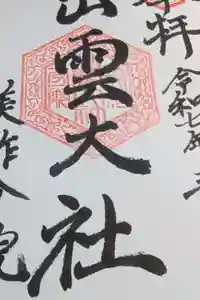 拝
令和七年
出雲大社
美作分院